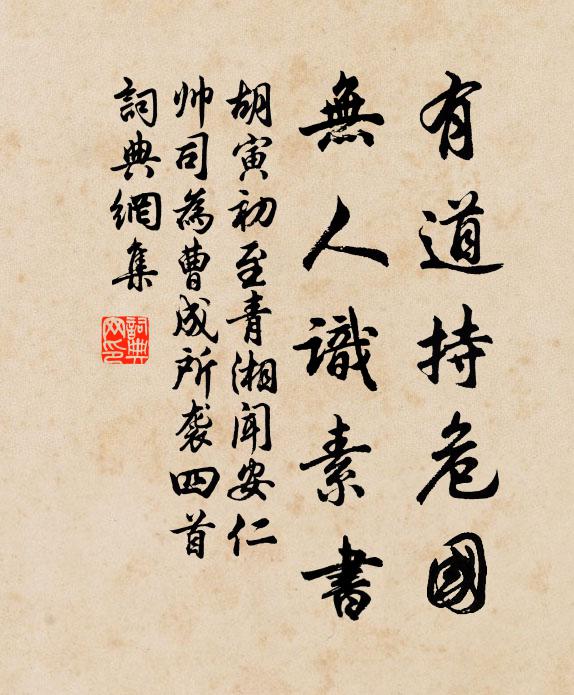 有道持危國
無人識素書
胡寅初至青湘闻安仁
帅司為曹成所袭四首
詞典網集
詞典網印